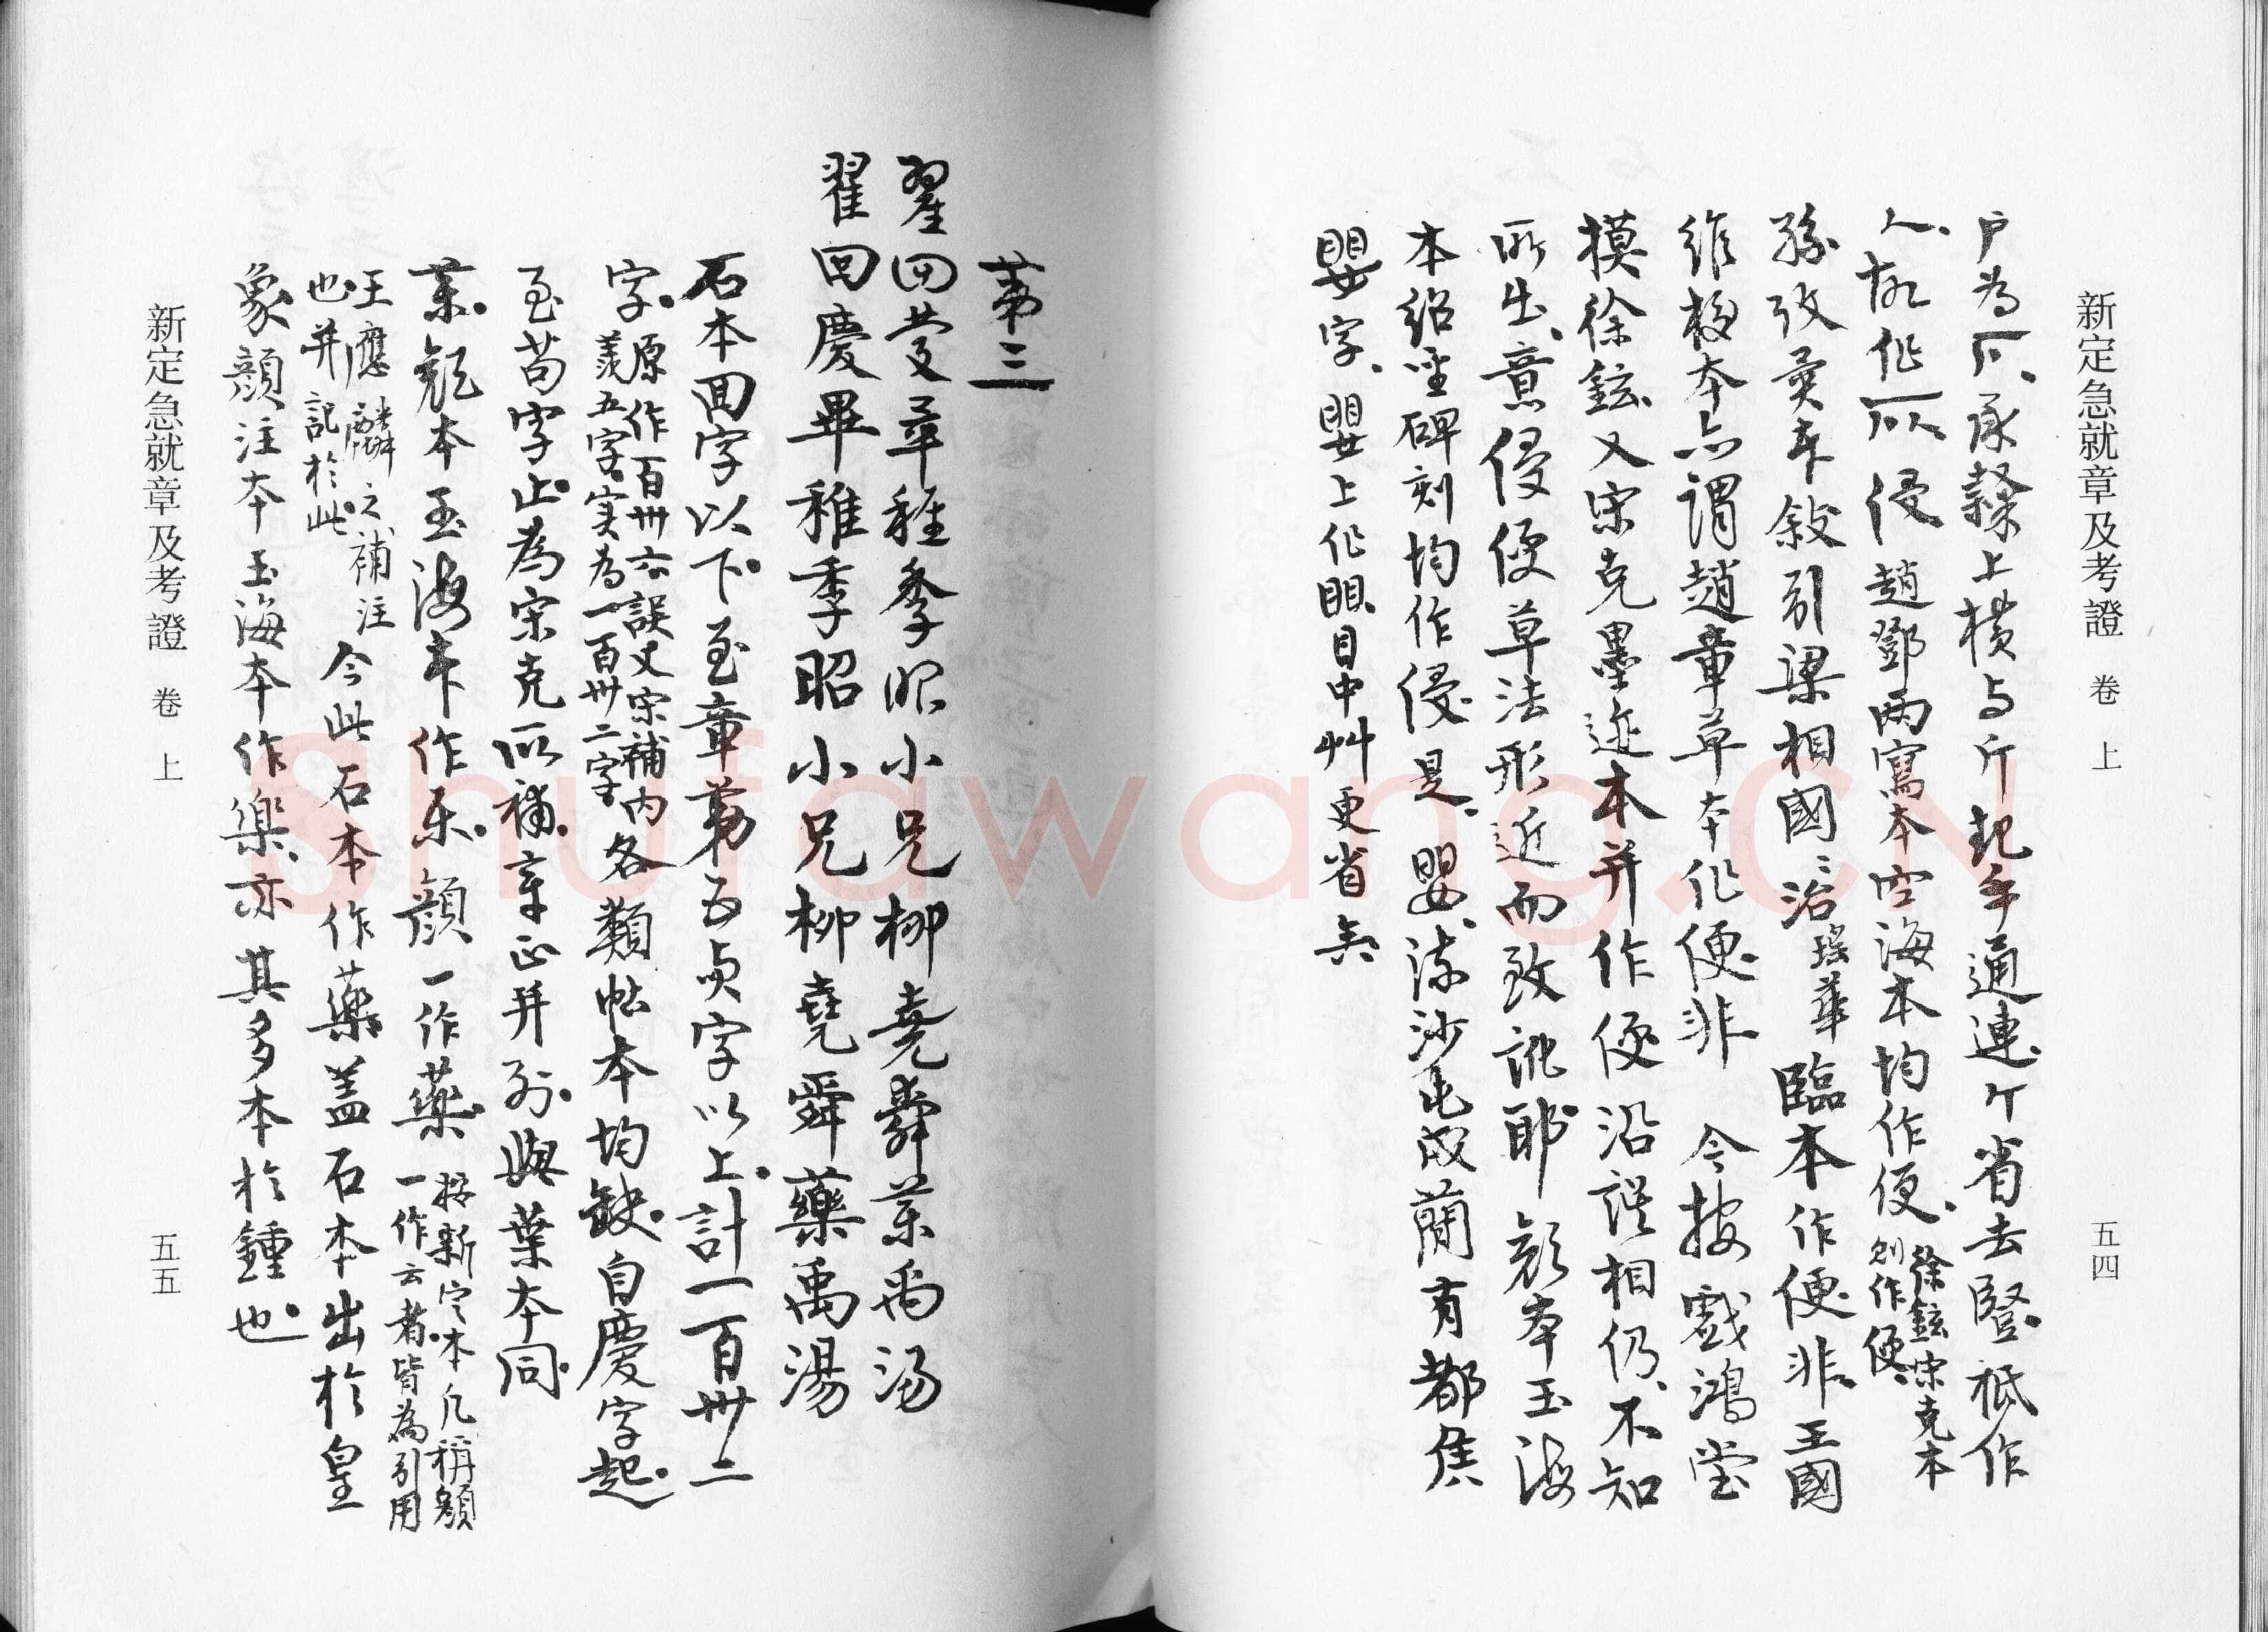 新定急就章及考證 卷上 五四
戶為 承隸上橫与斤起手通連 省去豎 祇作
人 作 侵 趙鄧兩寫本空海本均作便 徐鉉宋克本
則作便
孫攷異本敍引梁相國治瑤華臨本作便非 王國
維校本亦謂趙章草本作便非 今按戲鴻堂
摸徐鉉又宋克墨迹本并作便沿誤相仍 不知
所出 意侵便草法形近而致訛耶 顏本玉海
本紹聖碑刻均作侵是 嬰 流沙 簡有都焦
嬰字 嬰上作賏 目中 更省矣
第三
翟回慶畢稚季昭小兄柳堯舜藥禹湯
翟回慶畢稚季昭小兄柳堯舜藥禹湯
石本回字以下 至章第五貞字以上 計一百卅二
字 原作百卅六誤又宋補內
羨五字 实為一百卅二字
各類帖本均缺 自慶字起
至苟字止 為宋克所補 章正并列 與葉本同
藥 顏本玉海本作樂 顏一作藥 按新定本凡稱顏
一作云者 皆為引用
王應麟之補注
也 并記於此
今此石本作藥 蓋石本出於皇
象 顏注本玉海本作樂 亦其多本於鍾也
新定急就章及考證 卷上 五五
Shufawang.CN